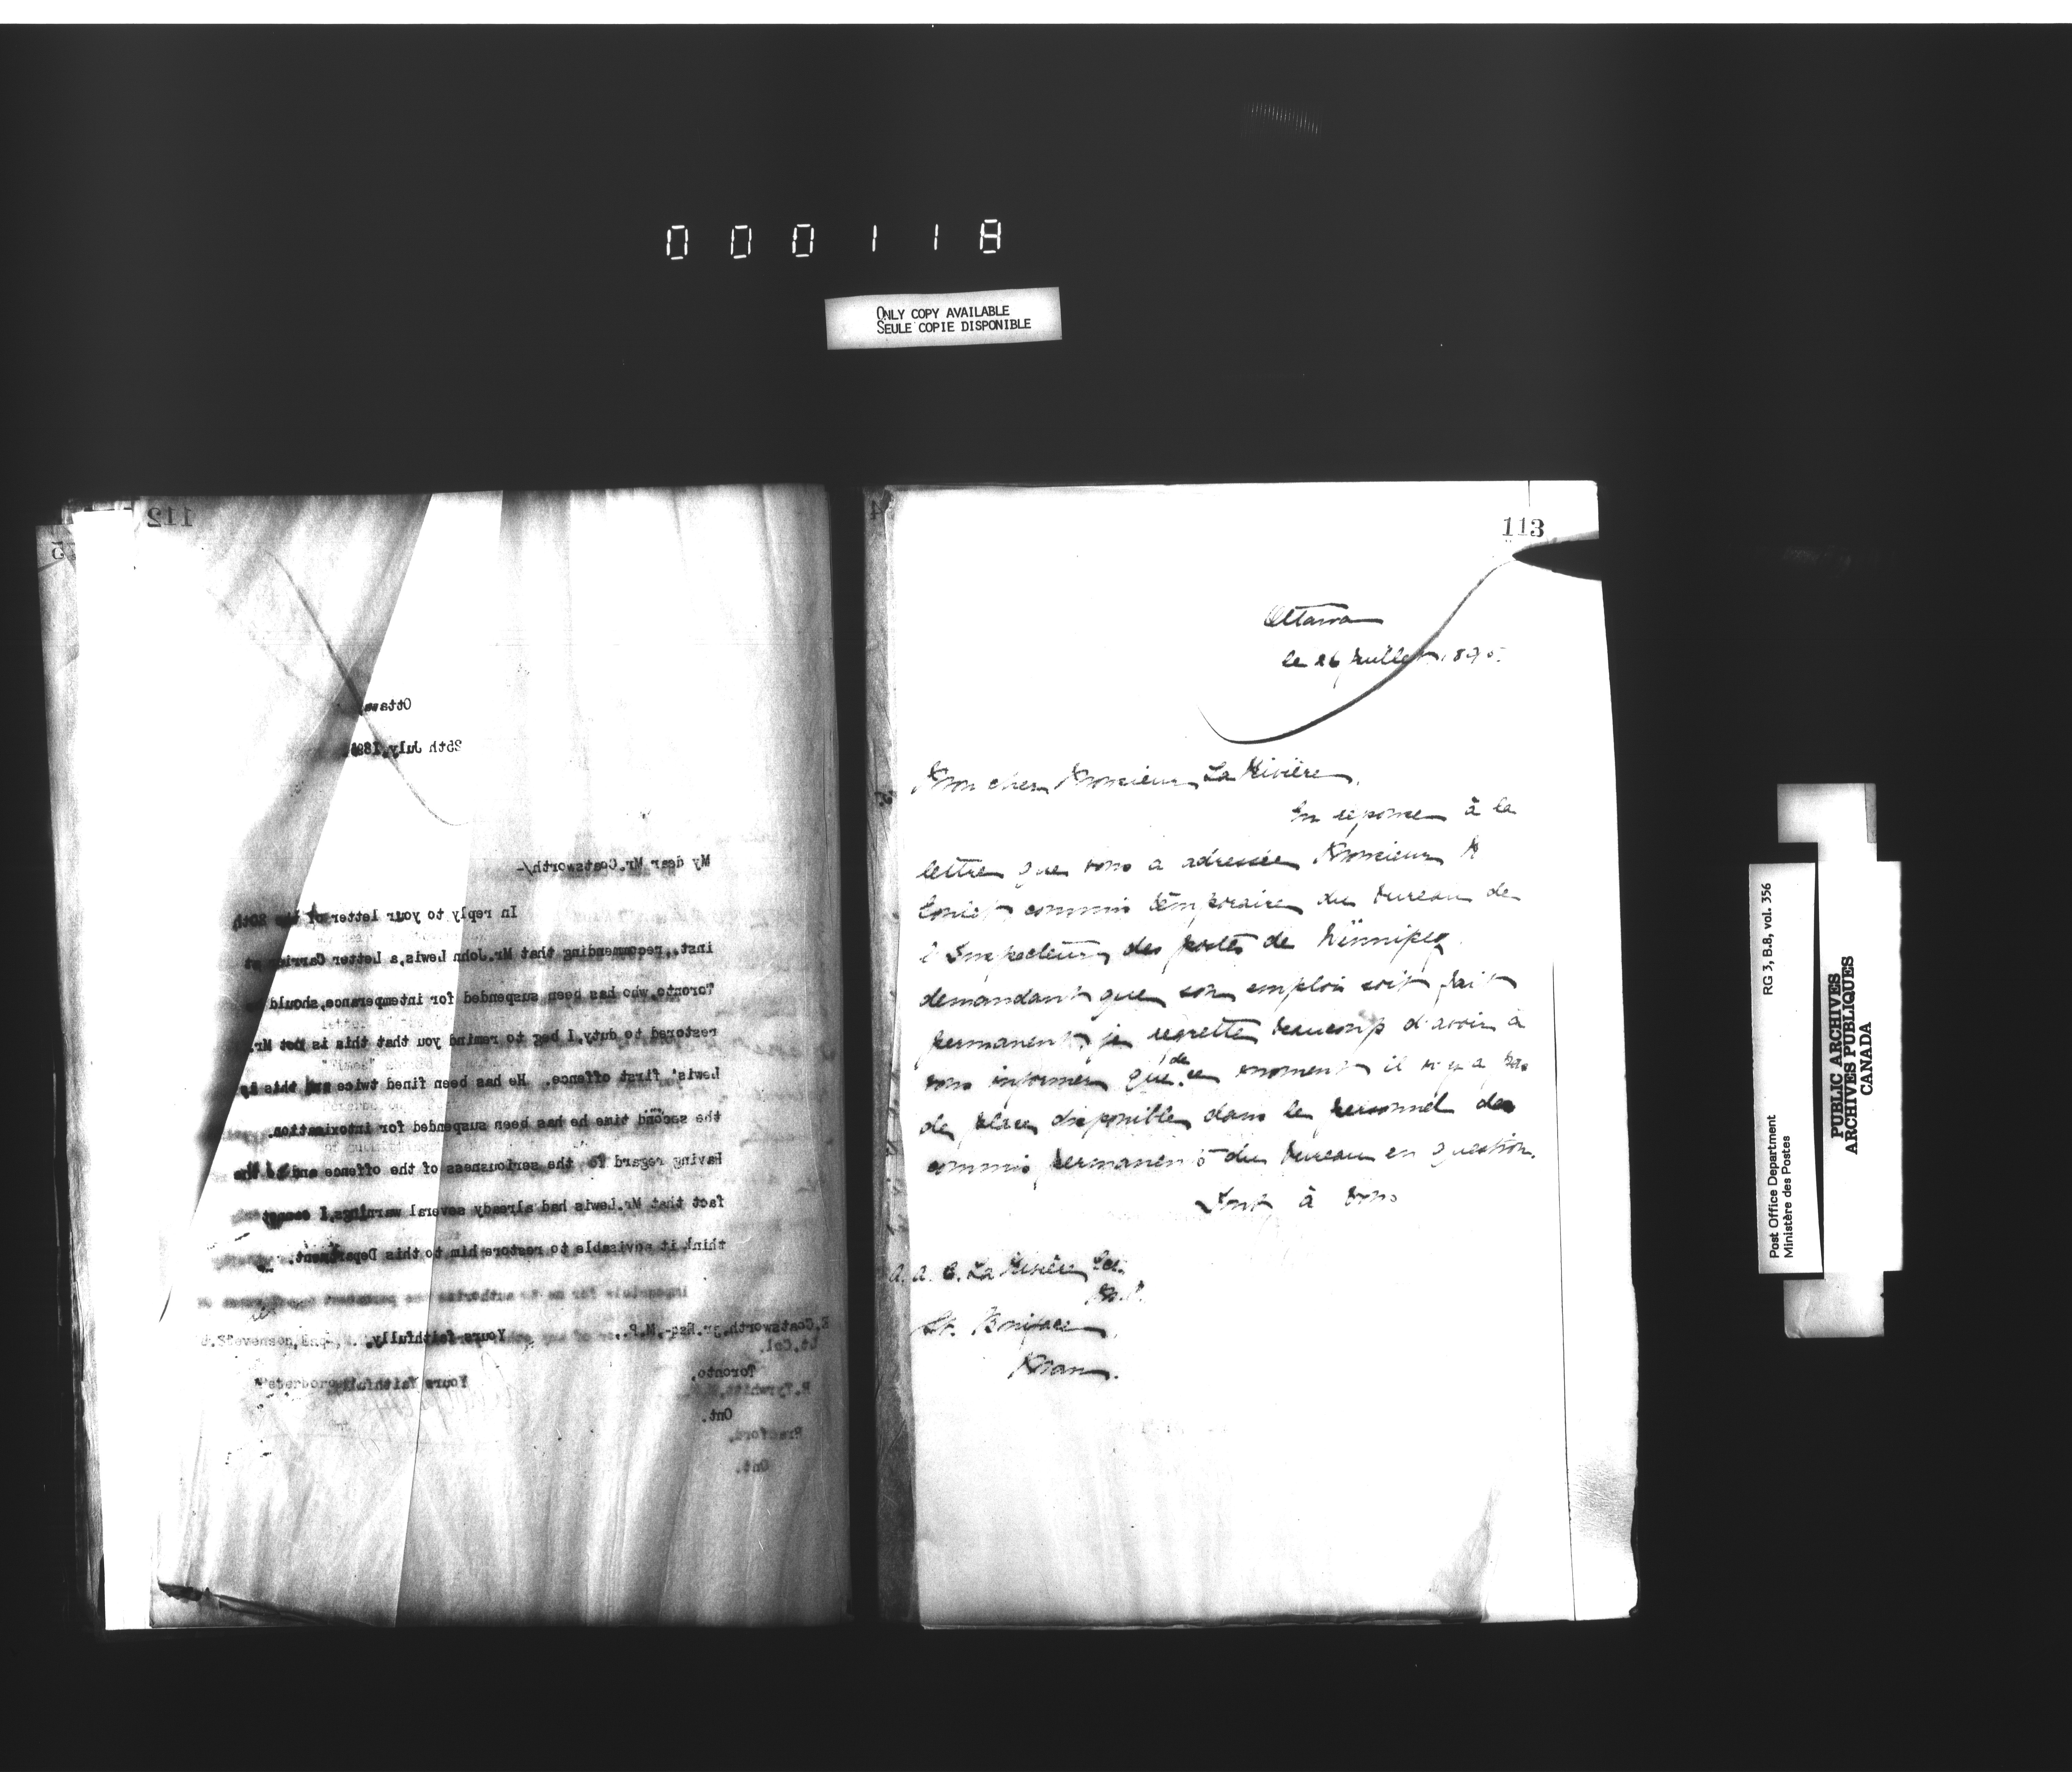 000118
ONLY COPY AVAILABLE
SEULE COPIE DISPONIBLE
112
Ottawa
25th July, 189
My dear Mr. Coatsworth/-
In reply to your letter of the 20th
inst., recommending that Mr. John Lewis, a Letter Carrier at
Toronto, who has been suspended for intemperance, should
restored to duty, I beg to remind you that this is not Mr.
Lewis' first offence. He has been fined twice and this is
the second time he has been suspended for intoxication.
Having regard to the seriousness of the offence and to the
fact that Mr. Lewis had already several warnings, I cannot
think it advisable to restore him to this Department.
E. Coatsworth, jr. Esq., M.P.,
Yours faithfully,
Lt. Col.
Toronto,
R. Tyrwhitt,
Yours faithfully
Ont.
Bradford,
Ont.
113
Ottawa
le 26 Juillet 1895.
Mon cher Monsieur La Rivière,
En reponse à la
lettre que vous a adressée Monsieur
commis temporaire du bureau de
l'Inspecteur des postes de Winnipeg
demandant que son emploi soit fait
permanent, je regrette beaucoup d'avoir à
vous informer que de ce moment il n'y a pas
de place disponible dans le personnel des
commis permanents du bureau en question.
Tout à vous
A. A. C. La Rivière, Ecr.
M.P.
St. Boniface,
Man.
RG 3, B.8, vol. 356
Post Office Department
Ministère des Postes
PUBLIC ARCHIVES
ARCHIVES PUBLIQUES
CANADA